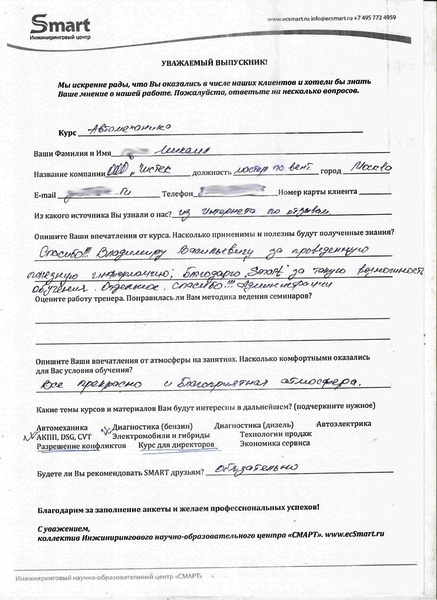 Smart
Инжиниринговый центр
www.ecsmart.ru info@ecsmart.ru +7 495 772 4959
УВАЖАЕМЫЙ ВЫПУСКНИК!
Мы искренне рады, что Вы оказались в числе наших клиентов и хотели бы знать
Ваше мнение о нашей работе. Пожалуйста, ответьте на несколько вопросов.
Курс Автомеханика
Ваши Фамилия и Имя Михаил
Название компании ООО "Истек" должность мастер по вент. город Москва
E-mail ru Телефон Номер карты клиента
Из какого источника Вы узнали о нас? из интернета по отзывам
Опишите Ваши впечатления от курса. Насколько применимы и полезны будут полученные знания?
Спасибо!!! Владимиру Васильевичу за проведенную
полезную информацию; Благодарю "Smart" за такую возможность
обучения. Отдельное спасибо!!! Администрации
Оцените работу тренера. Понравилась ли Вам методика ведения семинаров?
Опишите Ваши впечатления от атмосферы на занятиях. Насколько комфортными оказались
для Вас условия обучения?
Все прекрасно и благоприятная атмосфера.
Какие темы курсов и материалов Вам будут интересны в дальнейшем? (подчеркните нужное)
Автомеханика Диагностика (бензин) Диагностика (дизель) Автоэлектрика
АКПП, DSG, CVT Электромобили и гибриды Технологии продаж
Разрешение конфликтов Курс для директоров Экономика сервиса
Будете ли Вы рекомендовать SMART друзьям? Обязательно
Благодарим за заполнение анкеты и желаем профессиональных успехов!
С уважением,
коллектив Инжинирингового научно-образовательного центра «СМАРТ». www.ecSmart.ru
Инжиниринговый научно-образовательный центр «СМАРТ»